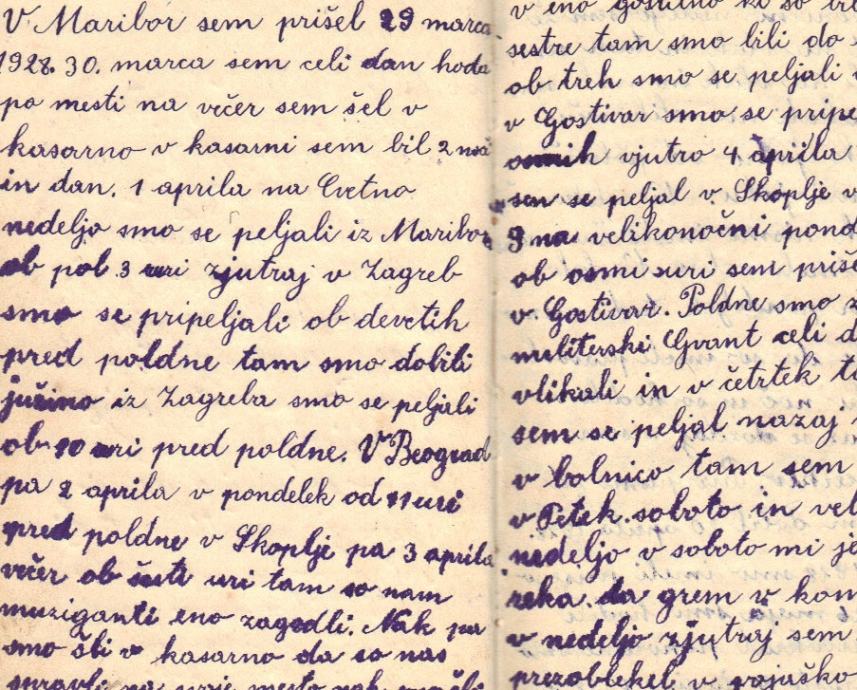 V Maribor sem prišel 29 marca
1928. 30. marca sem celi dan hoda
po mesti na večer sem šel v
kasarno v kasarni sem bil 2 noč
in dan. 1 aprila na Cvetno
nedeljo smo se peljali iz Maribor
ob pol 3 uri zjutraj v Zagreb
smo se pripeljali ob devetih
pred poldne tam smo dobili
južino iz Zagreba smo se peljali
ob 10 uri pred poldne. V Beograd
pa 2 aprila v pondelek od 11 uri
pred poldne v Skoplje pa 3 aprila
večer ob šesti uri tam so nam
muziganti eno zagodli. Nak pa
smo šli v kasarno da so nas
spravli na svoje mesto nak
v eno gostilno ki so
sestre tam smo bili do
ob treh smo se peljali
v Gostivar smo se pripe
osmih vjutro 4 aprila
sen se peljal v Skoplje v
9 na velikonočni pond
ob osmi uri sem priše
v Gostivar. Poldne smo z
militerski Gvant celi d
vlikali in v četrtek t
sem se peljal nazaj
v bolnico tam sem
v Petek. soboto in vel
nedeljo v soboto mi je
reka. da grem v kom
v nedeljo zjutraj sem
prezoblekel v vojaško